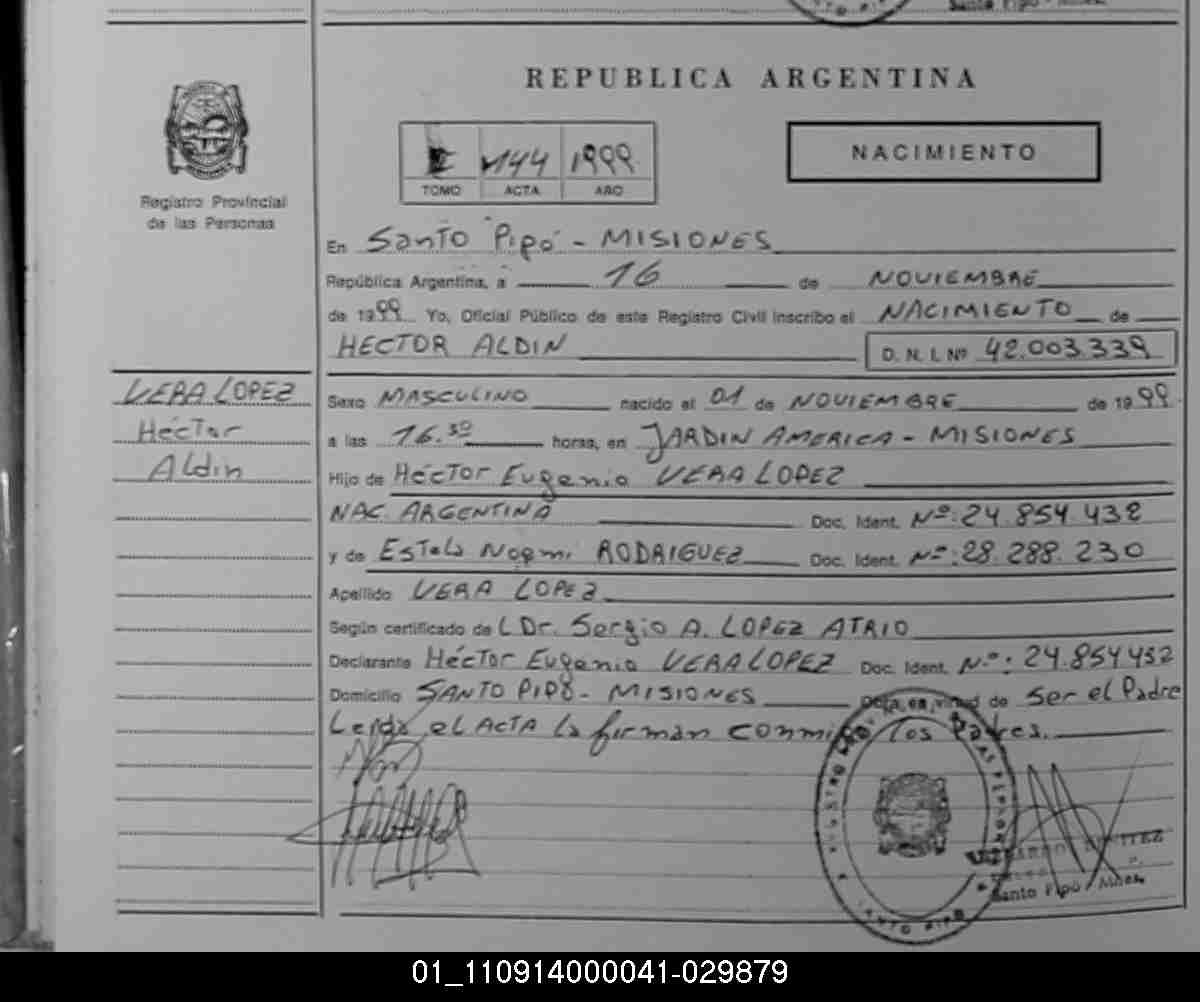 Santo Pipó - Mnes.
REPUBLICA ARGENTINA
144 1999
TOMO ACTA AÑO
NACIMIENTO
Registro Provincial
de las Personas
En Santo Pipó - MISIONES
República Argentina, a 16 de NOVIEMBRE
de 1999 Yo, Oficial Público de este Registro Civil inscribo el NACIMIENTO de
HECTOR ALDIN D. N. I. Nº 42.003.339
VERA LOPEZ
Héctor
Aldin
Sexo MASCULINO nacido el 01 de NOVIEMBRE de 1999
a las 16.30 horas, en JARDIN AMERICA - MISIONES
Hijo de HéCTOR Eugenio VERA LOPEZ
NAC. ARGENTINA Doc. Ident. Nº: 24.854.432
y de Estela Noemi RODRIGUEZ Doc. Ident. Nº: 28.288.230
Apellido VERA LOPEZ
Según certificado de L Dr. Sergio A. LOPEZ ATRIO
Declarante Héctor Eugenio VERA LOPEZ Doc. Ident. Nº: 24.854432
Domicilio SANTO PIPÓ - MISIONES Obra en virtud de Ser el Padre
Leida el ACTA la firman conmigo los Padres.
REGISTRO PROV. DE LAS PERSONAS
SANTO PIPO
BENITEZ
Santo Pipó - Mnes.
01_110914000041-029879